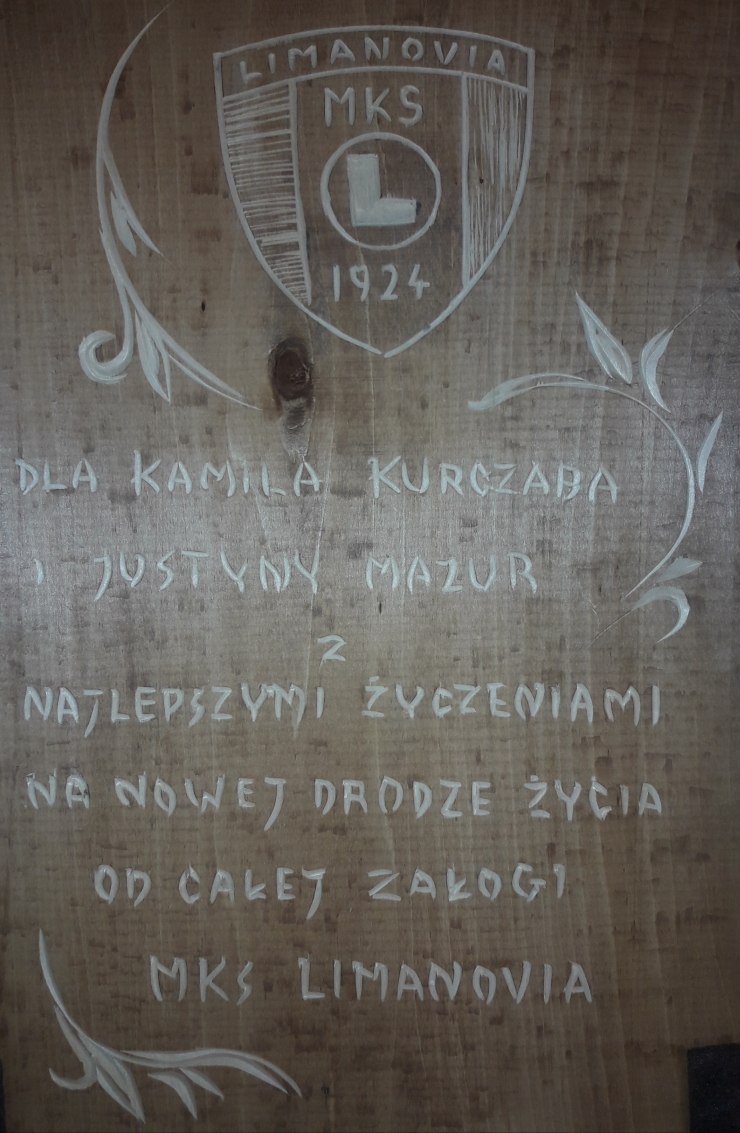 LIMANOVIA
MKS
L
1924
DLA KAMILA KURCZABA
I JUSTYNY MAZUR
Z
NAJLEPSZYMI ŻYCZENIAMI
NA NOWEJ DRODZE ŻYCIA
OD CAŁEJ ZAŁOGI
MKS LIMANOVIA